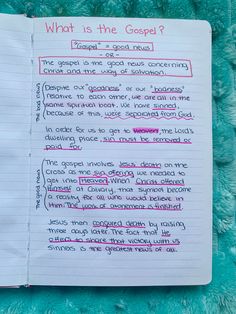 What is the Gospel?
"Gospel" = good news
- OR -
The gospel is the good news concerning
Christ and the way of salvation.
the bad news
Despite our "goodness" or our "badness"
relative to each other, we are all in the
same spiritual boat. We have sinned,
because of this, we're separated from God.
In order for us to get to Heaven, the Lord's
dwelling place, sin must be removed or
paid for.
the good news
The gospel involves Jesus' death on the
cross as the sin offering we needed to
get into Heaven. When Christ offered
Himself at Calvary, that symbol became
a reality for all who would believe in
Him. The work of atonement is finished.
Jesus then conquered death by raising
three days later. The fact that He
offers to share that victory with us
sinners is the greatest news of all.